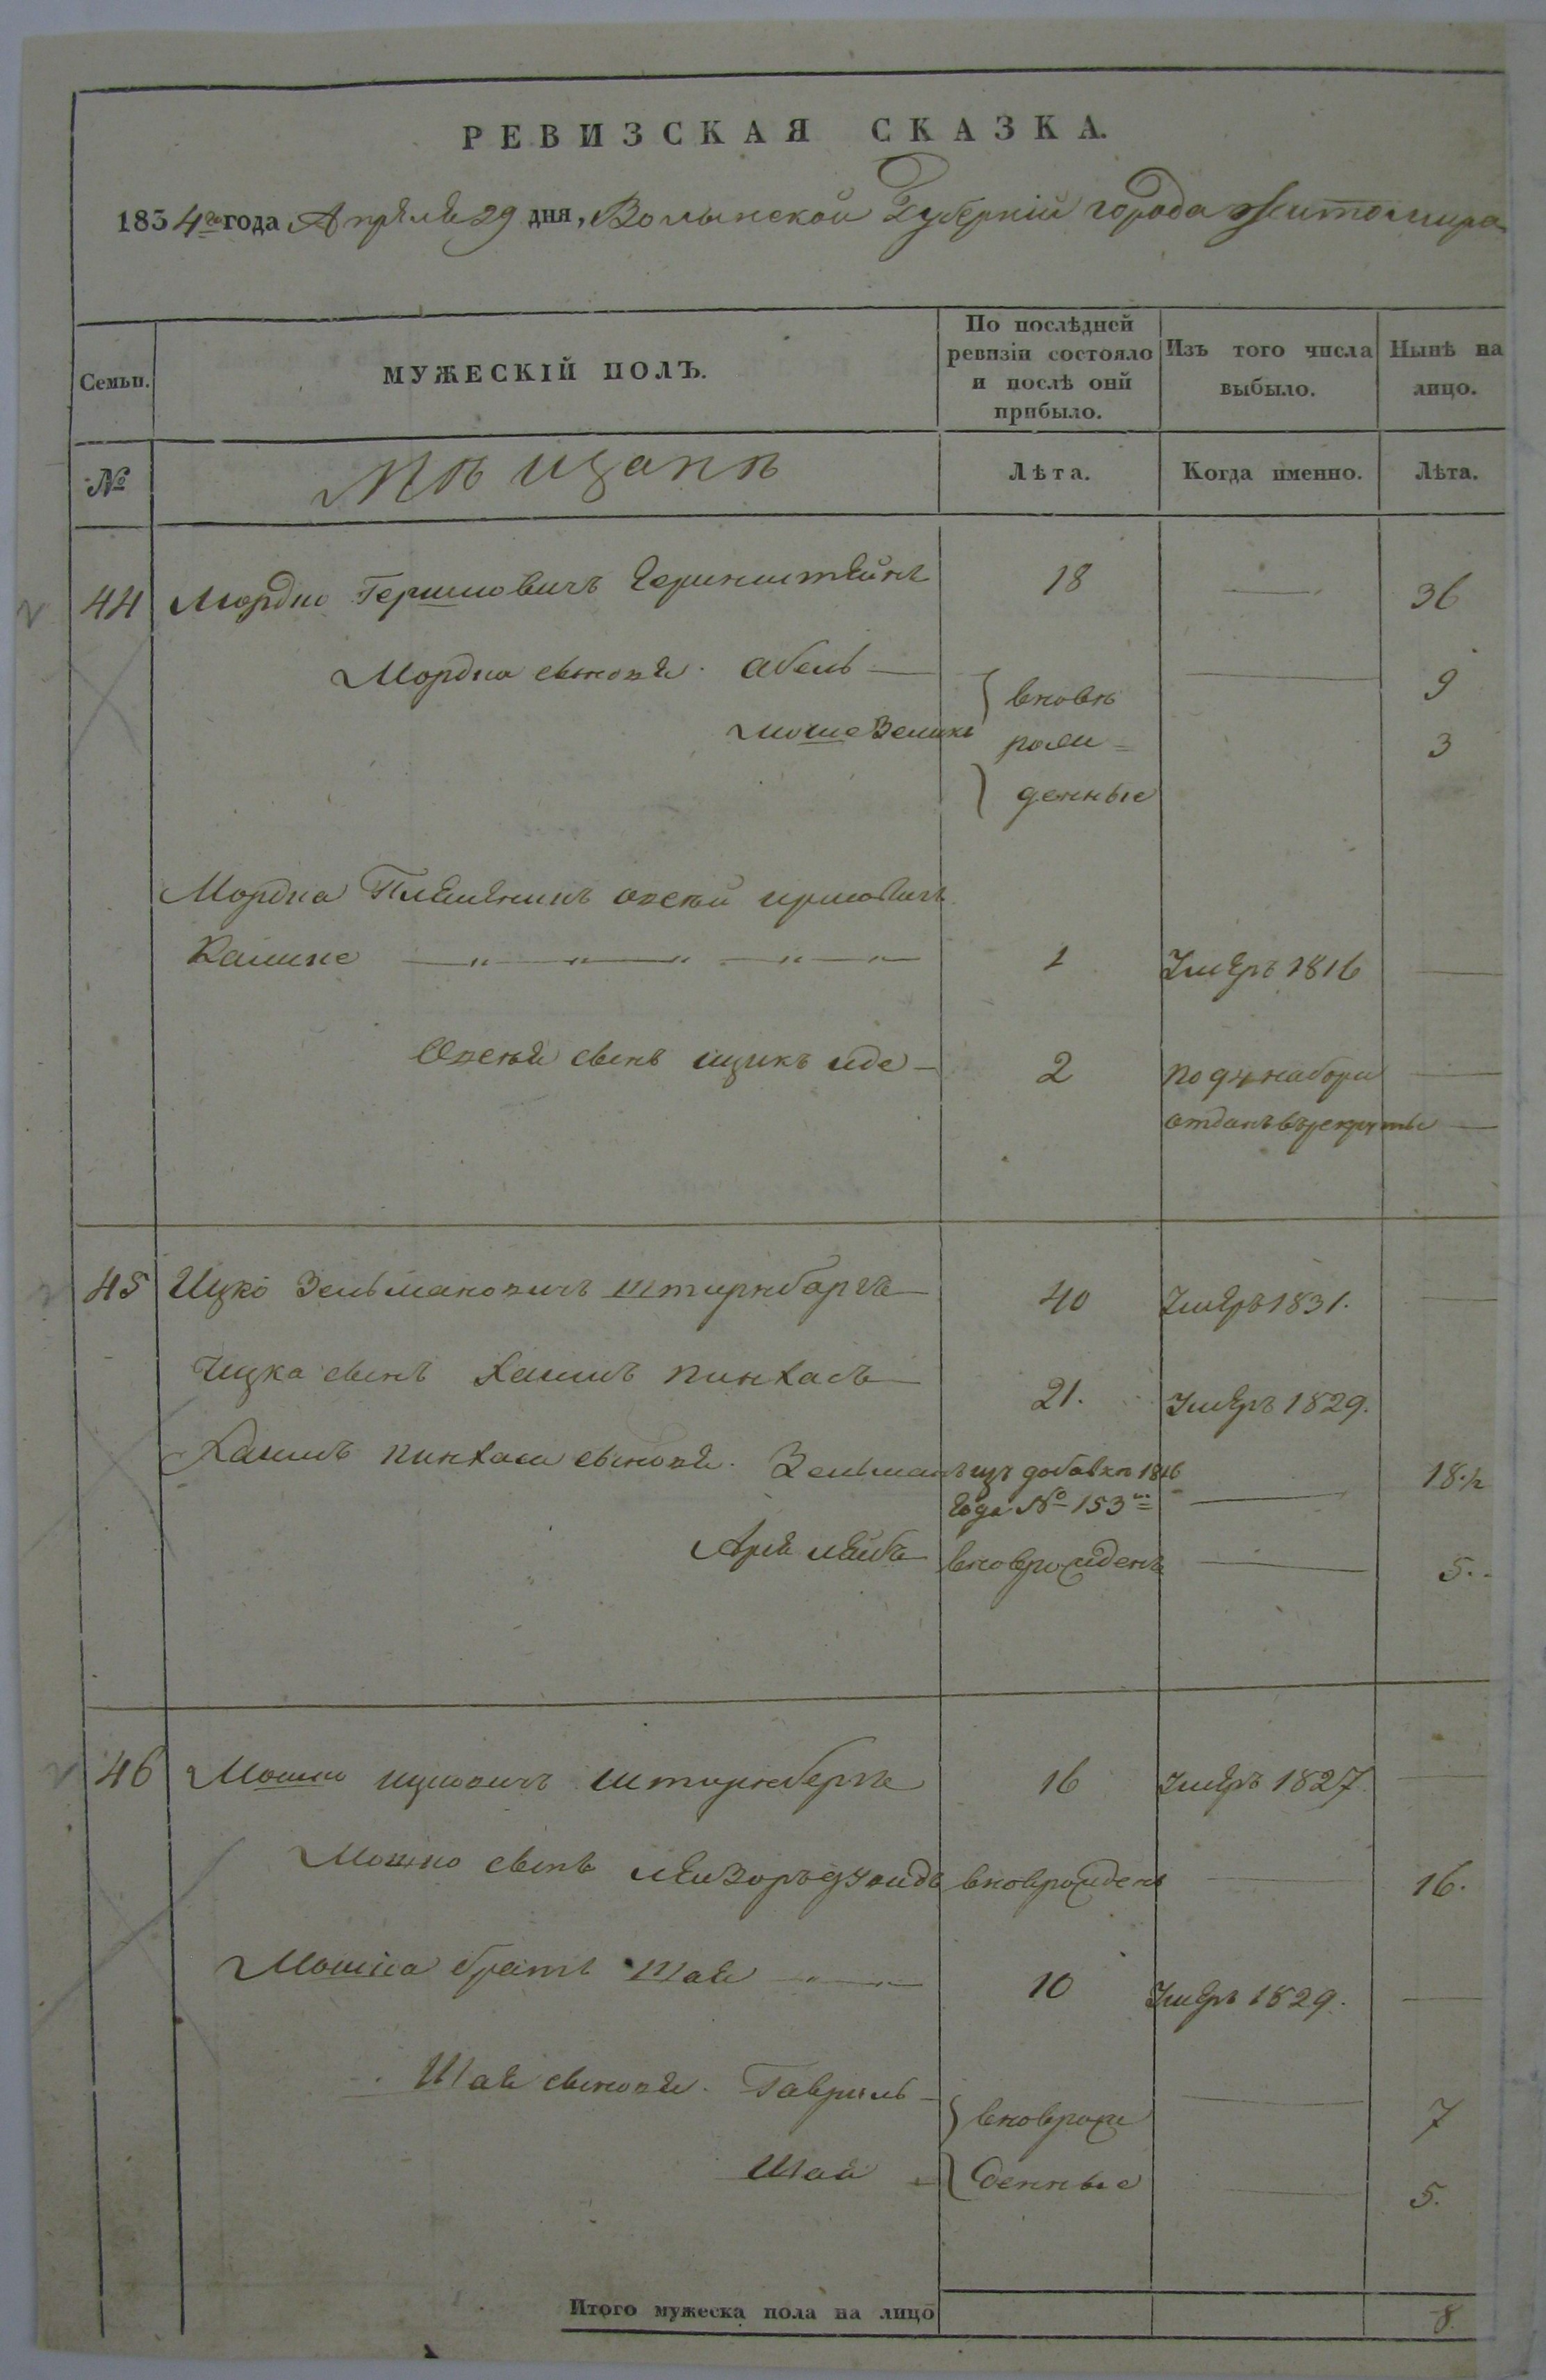 РЕВИЗСКАЯ СКАЗКА.
1834го года Апреля 29 дня, Волынской Губерніи города Житомира
Семьи. МУЖЕСКІЙ ПОЛЪ. По послѣдней ревизіи состояло и послѣ оній прибыло. Изъ того числа выбыло. Нынѣ на лицо.
№ Мѣщанѣ Лѣта. Когда именно. Лѣта.
44 Мордко Гершковичъ 18 — 36
Мордка сыновя. Абель — вновь — 9
Моше Зеликъ рож= 3
денные
Мордка Племеникъ
1 Умеръ 1816 —
сынъ ицикъ 2 по 94 набору —
отданъ въ рекруты —
45 Ицко Зельмановичъ Штирнбаргъ 40 Умеръ 1831. —
Ицка сынъ Хаимъ Пинхасъ 21. Умеръ 1829.
Хаимъ Пинхаса сыновя. Зельманъ изъ добавкѣ 1816 — 18.½
года № 153
Аріе лейбъ вноврожденъ — 5.
46 Мошко ицковичъ Штирнбергъ 16 Умеръ 1827 —
Мошко сынъ вноврожденъ — 16.
Мошка братъ Шая 10 Умеръ 1829. —
Шая сыновя. Гавриль вноврож — 7
Шая денные — 5.
Итого мужеска пола на лицо 8.